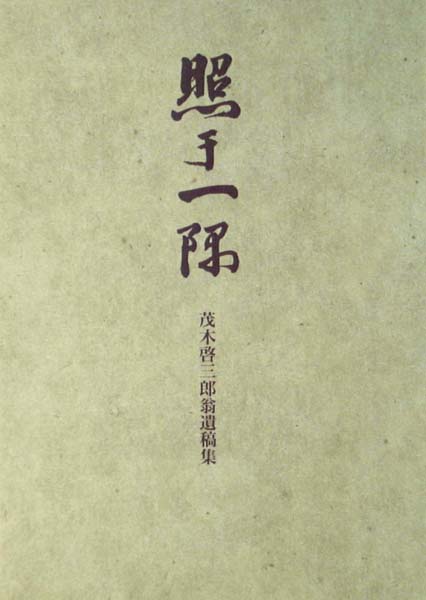 照于一隅
茂木啓三郎翁遺稿集